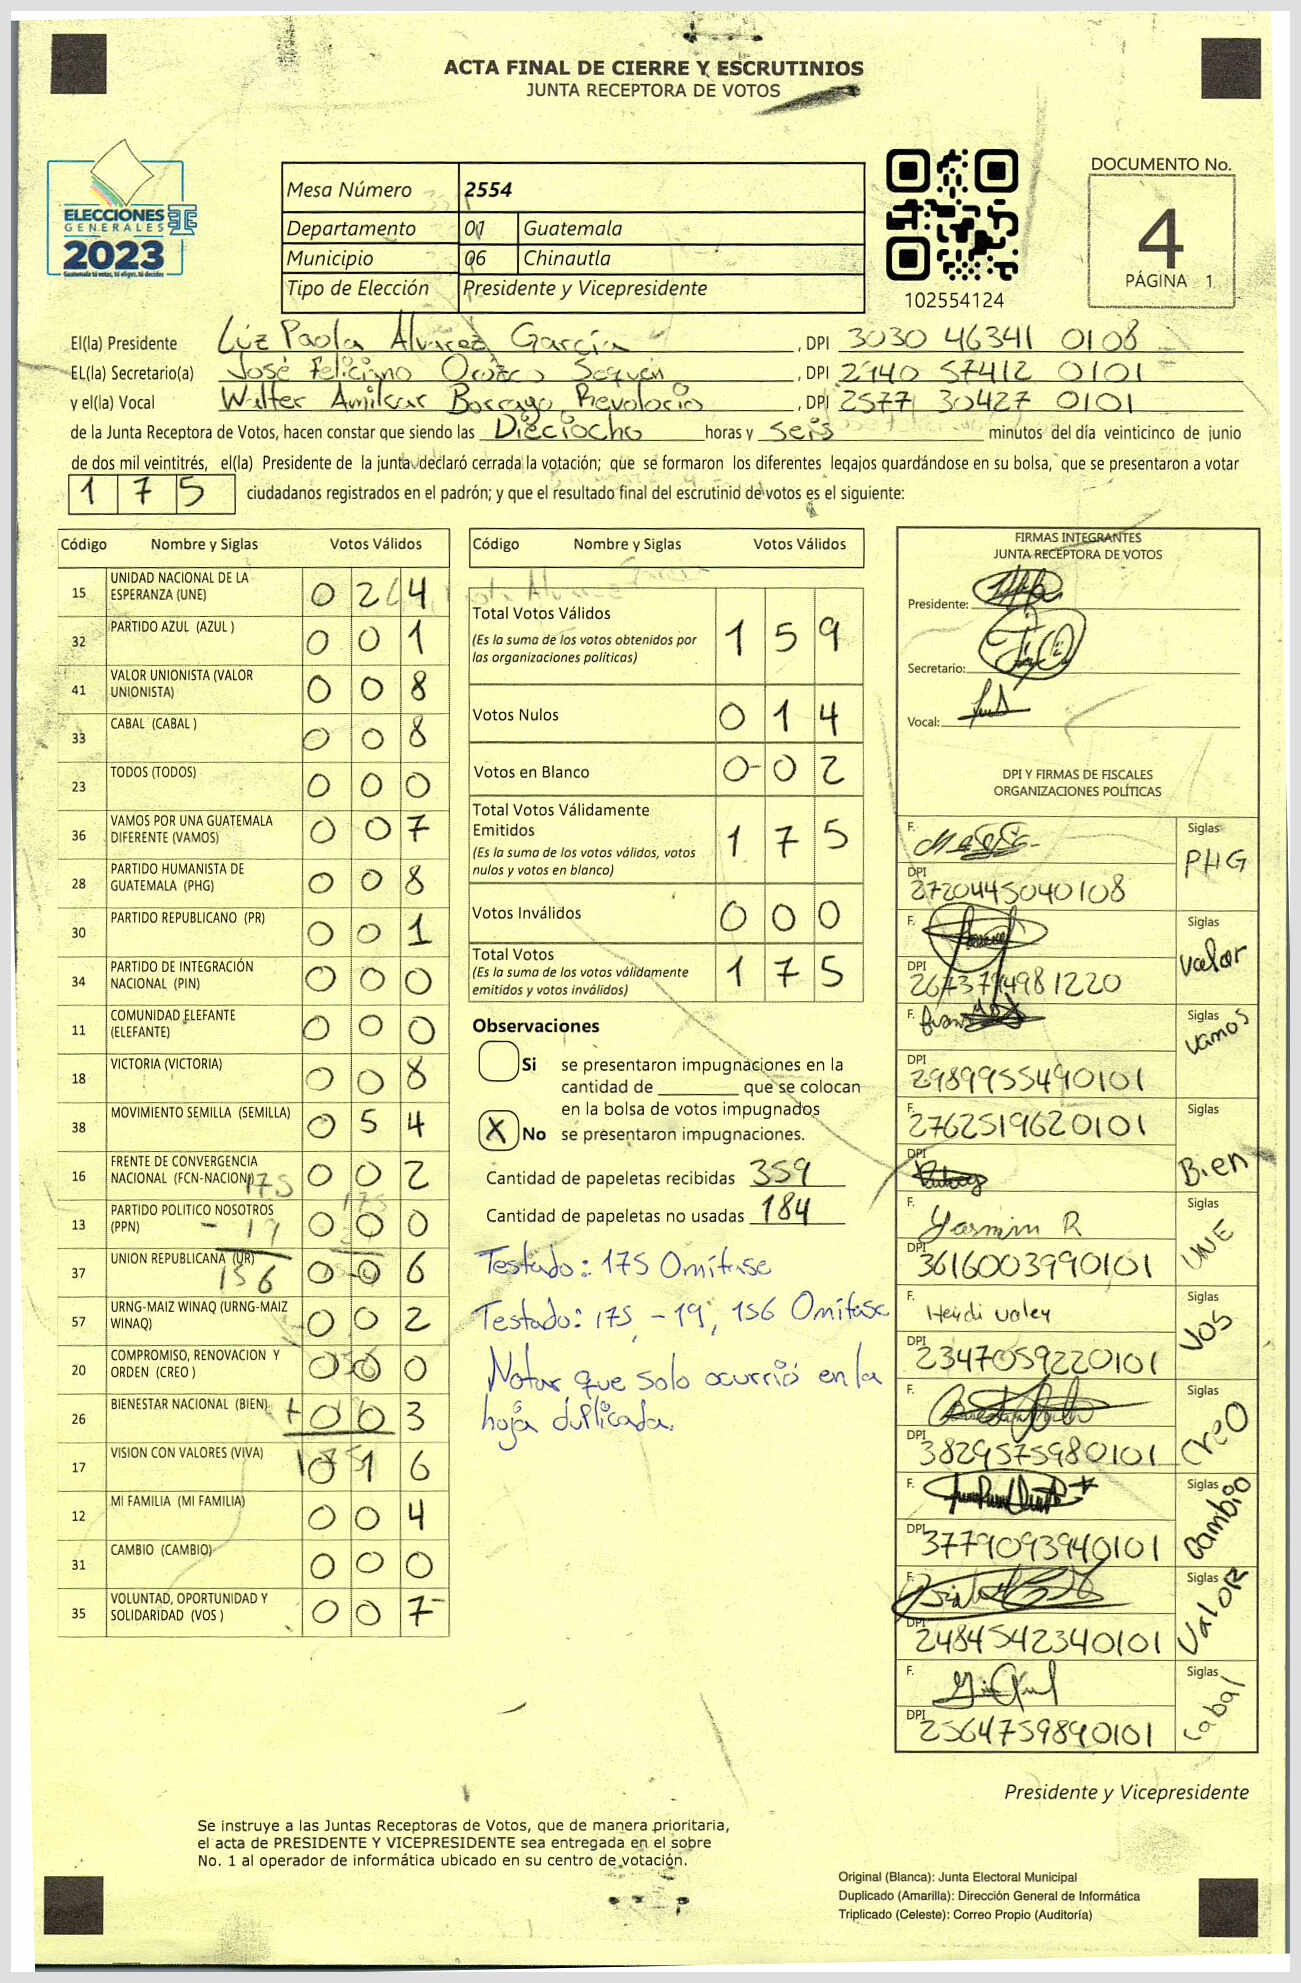 ACTA FINAL DE CIERRE Y ESCRUTINIOS
JUNTA RECEPTORA DE VOTOS
ELECCIONES
GENERALES
2023
Guatemala tú votas, tú eliges, tú decides
Mesa Número 2554
Departamento 01 Guatemala
Municipio 06 Chinautla
Tipo de Elección Presidente y Vicepresidente
102554124
DOCUMENTO No.
4
PÁGINA 1
El(la) Presidente Liz Paola Alvarez García, DPI 3030 46341 0108
EL(la) Secretario(a) José Feliciano Orozco Sequén, DPI 2940 57412 0101
y el(la) Vocal Walter Amilcar Borrayo Revolorio, DPI 2577 30427 0101
de la Junta Receptora de Votos, hacen constar que siendo las Dieciocho horas y seis minutos del día veinticinco de junio
de dos mil veintitrés, el(la) Presidente de la junta declaró cerrada la votación; que se formaron los diferentes legajos guardándose en su bolsa, que se presentaron a votar
175 ciudadanos registrados en el padrón; y que el resultado final del escrutinio de votos es el siguiente:
Código Nombre y Siglas Votos Válidos
15 UNIDAD NACIONAL DE LA ESPERANZA (UNE) 0 2 4
32 PARTIDO AZUL (AZUL ) 0 0 1
41 VALOR UNIONISTA (VALOR UNIONISTA) 0 0 8
33 CABAL (CABAL ) 0 0 8
23 TODOS (TODOS) 0 0 0
36 VAMOS POR UNA GUATEMALA DIFERENTE (VAMOS) 0 0 7
28 PARTIDO HUMANISTA DE GUATEMALA (PHG) 0 0 8
30 PARTIDO REPUBLICANO (PR) 0 0 1
34 PARTIDO DE INTEGRACIÓN NACIONAL (PIN) 0 0 0
11 COMUNIDAD ELEFANTE (ELEFANTE) 0 0 0
18 VICTORIA (VICTORIA) 0 0 8
38 MOVIMIENTO SEMILLA (SEMILLA) 0 5 4
16 FRENTE DE CONVERGENCIA NACIONAL (FCN-NACION) 0 0 2
175
13 PARTIDO POLITICO NOSOTROS (PPN) 0 0 0
- 19
37 UNION REPUBLICANA (UR) 0 0 6
156
57 URNG-MAIZ WINAQ (URNG-MAIZ WINAQ) 0 0 2
20 COMPROMISO, RENOVACION Y ORDEN (CREO ) 0 0 0
26 BIENESTAR NACIONAL (BIEN) 0 0 3
17 VISION CON VALORES (VIVA) 0 1 6
12 MI FAMILIA (MI FAMILIA) 0 0 4
31 CAMBIO (CAMBIO) 0 0 0
35 VOLUNTAD, OPORTUNIDAD Y SOLIDARIDAD (VOS ) 0 0 7
Código Nombre y Siglas Votos Válidos
Total Votos Válidos 1 5 9
(Es la suma de los votos obtenidos por
las organizaciones políticas)
Votos Nulos 0 1 4
Votos en Blanco 0 0 2
Total Votos Válidamente
Emitidos 1 7 5
(Es la suma de los votos válidos, votos
nulos y votos en blanco)
Votos Inválidos 0 0 0
Total Votos 1 7 5
(Es la suma de los votos válidamente
emitidos y votos inválidos)
Observaciones
Si se presentaron impugnaciones en la
cantidad de ________ que se colocan
en la bolsa de votos impugnados
X No se presentaron impugnaciones.
Cantidad de papeletas recibidas 359
Cantidad de papeletas no usadas 184
Testado: 175 Omítase
Testado: 175, -19, 156 Omítase
Notar que solo ocurrió en la
hoja duplicada.
FIRMAS INTEGRANTES
JUNTA RECEPTORA DE VOTOS
Presidente:
Secretario:
Vocal:
DPI Y FIRMAS DE FISCALES
ORGANIZACIONES POLÍTICAS
F. Siglas PHG
DPI 2720445040108
F. Siglas Valor
DPI 2673794981220
F. Siglas Vamos
DPI 2989955490101
F. 2762519620101 Siglas Bien
DPI
F. Yasmin R Siglas UNE
DPI 3616003990101
F. Heydi Valey Siglas VOS
DPI 2347059220101
F. Siglas CREO
DPI 3829575980101
F. Siglas Cambio
DPI 3779093940101
F. Siglas ValoR
DPI 2484542340101
F. Siglas Cabal
DPI 2564759890101
Presidente y Vicepresidente
Se instruye a las Juntas Receptoras de Votos, que de manera prioritaria,
el acta de PRESIDENTE Y VICEPRESIDENTE sea entregada en el sobre
No. 1 al operador de informática ubicado en su centro de votación.
Original (Blanca): Junta Electoral Municipal
Duplicado (Amarilla): Dirección General de Informática
Triplicado (Celeste): Correo Propio (Auditoría)